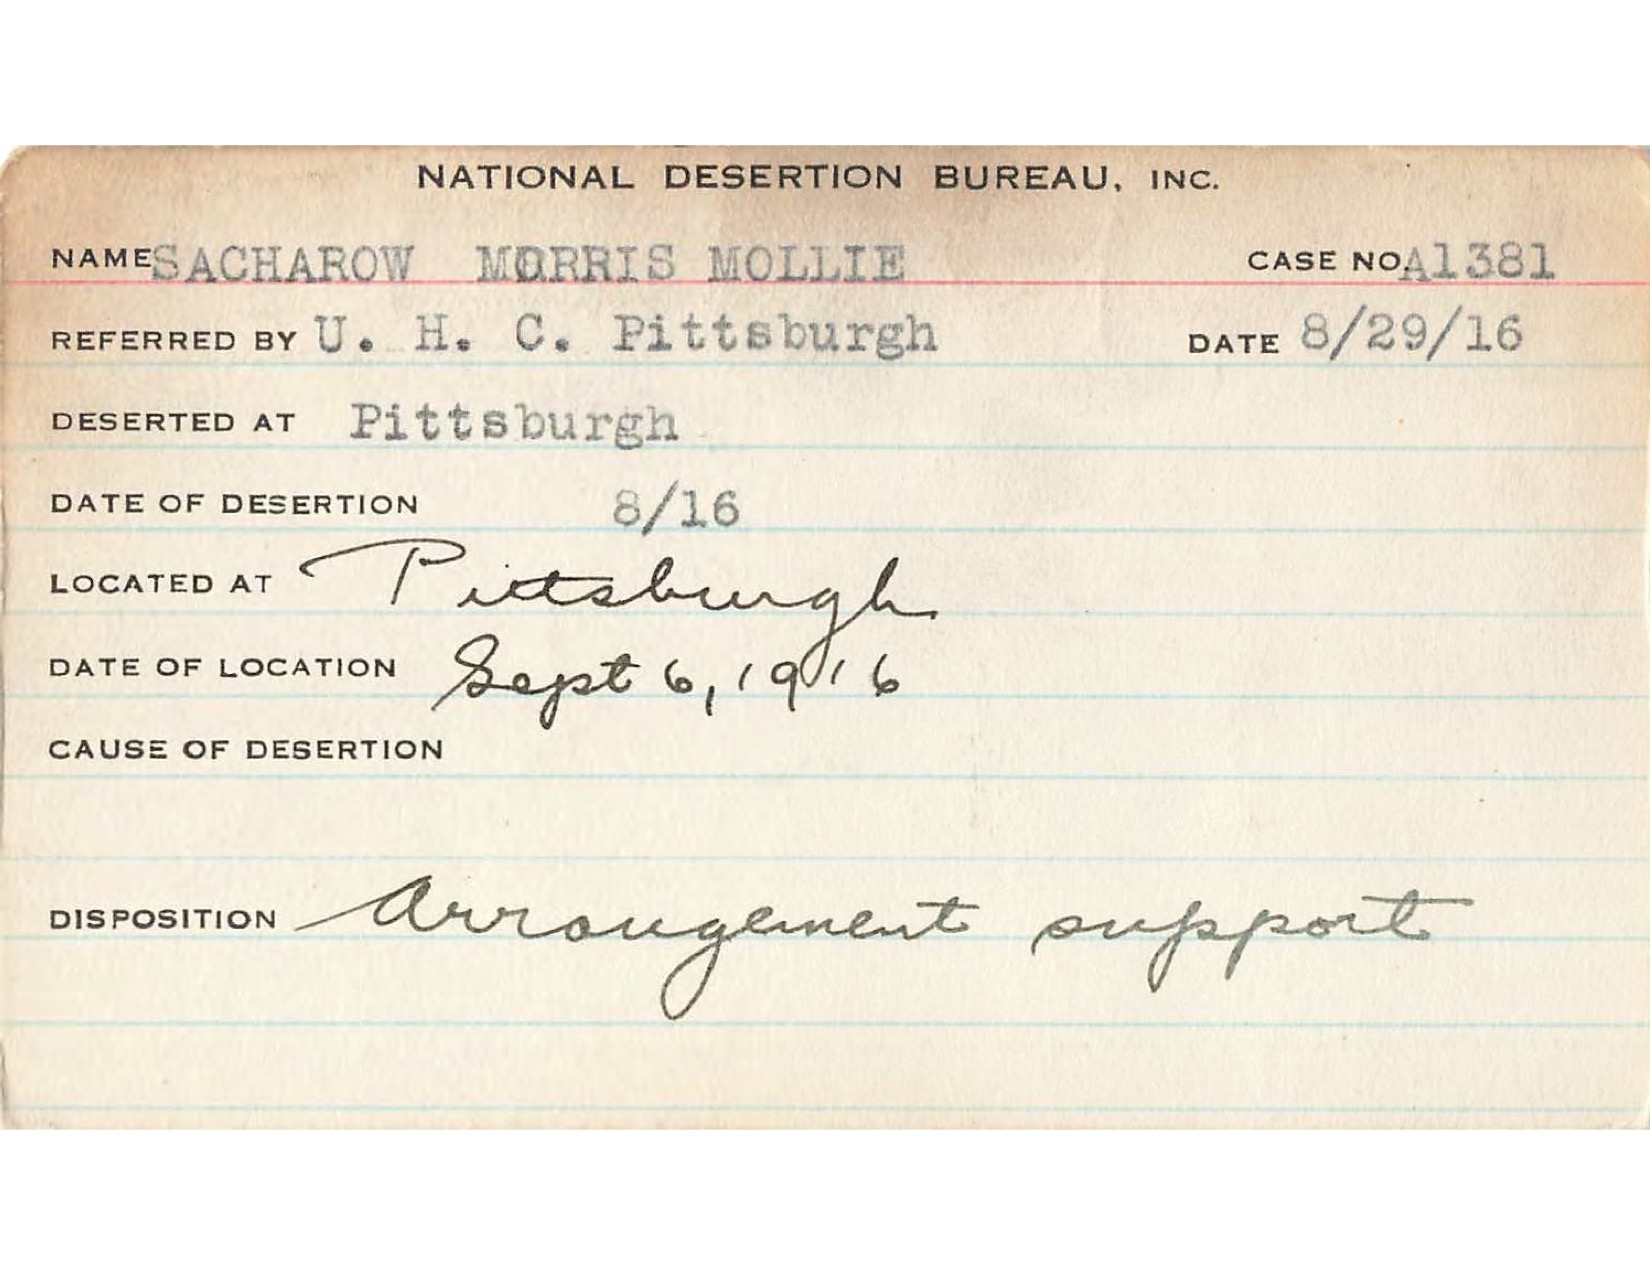 NATIONAL DESERTION BUREAU, INC.
NAME SACHAROW MORRIS MOLLIE CASE NO. A1381
REFERRED BY U. H. C. Pittsburgh DATE 8/29/16
DESERTED AT Pittsburgh
DATE OF DESERTION 8/16
LOCATED AT Pittsburgh
DATE OF LOCATION Sept 6, 1916
CAUSE OF DESERTION
DISPOSITION Arrangement support